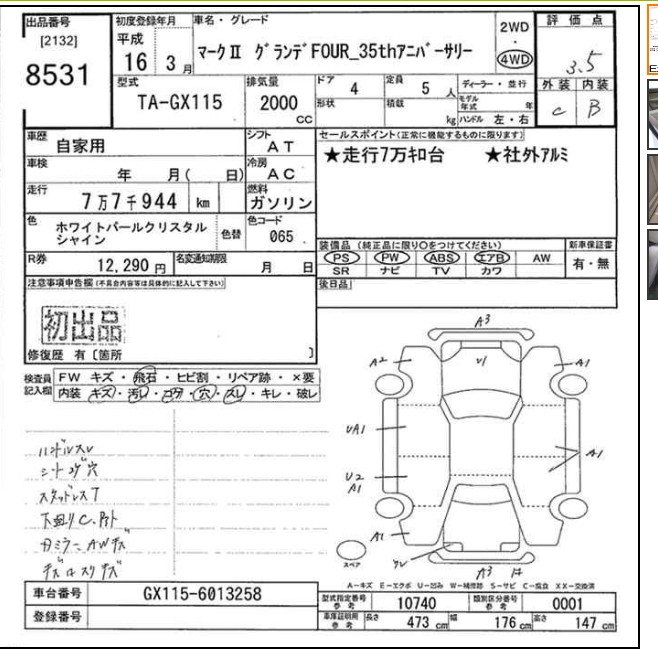 出品番号
[2132]
8531
初度登録年月
平成
16 3 月
車名・グレード
マークⅡ グランデFOUR_35thアニバーサリー
2WD
・
4WD
評価点
3.5
外装 内装
C B
型式
TA-GX115
排気量
2000
CC
ドア 4
定員 5 人
ディーラー・並行
形状
積載 kg
モデル年式 年
ハンドル 左・右
車歴
自家用
シフト
AT
セールスポイント(正常に機能するものに限ります)
★走行7万キロ台 ★社外アルミ
車検
年 月( 日)
冷房
AC
走行
7万7千944 km
燃料
ガソリン
色
ホワイトパールクリスタル
シャイン
色替
色コード
065
装備品(純正品に限り○をつけてください)
新車保証書
PS PW ABS エアB AW
SR ナビ TV カワ
有・無
R券
12,290 円
名変通知期限
月 日
後日品
注意事項申告欄(不具合内容等は具体的に記入して下さい)
初出品
修復歴 有〔箇所 〕
検査員
記入欄
FW キズ・飛石・ヒビ割・リペア跡・×要
内装 キズ・汚レ・コゲ・穴・スレ・キレ・破レ
ハンドルスレ
シートコゲ穴
スタッドレスT
下回りC.
ミラー.AWキズ
A3
A2
V1
A1
UA1
U2
A1
A1
A1
A3
スペア
A-キズ E-エクボ U-凹み W-補修跡 S-サビ C-腐食 XX-交換済
車台番号
GX115-6013258
登録番号
型式指定番号
参考
10740
類別区分番号
参考
0001
車庫証明用
参考
長さ 473 cm
幅 176 cm
高さ 147 cm